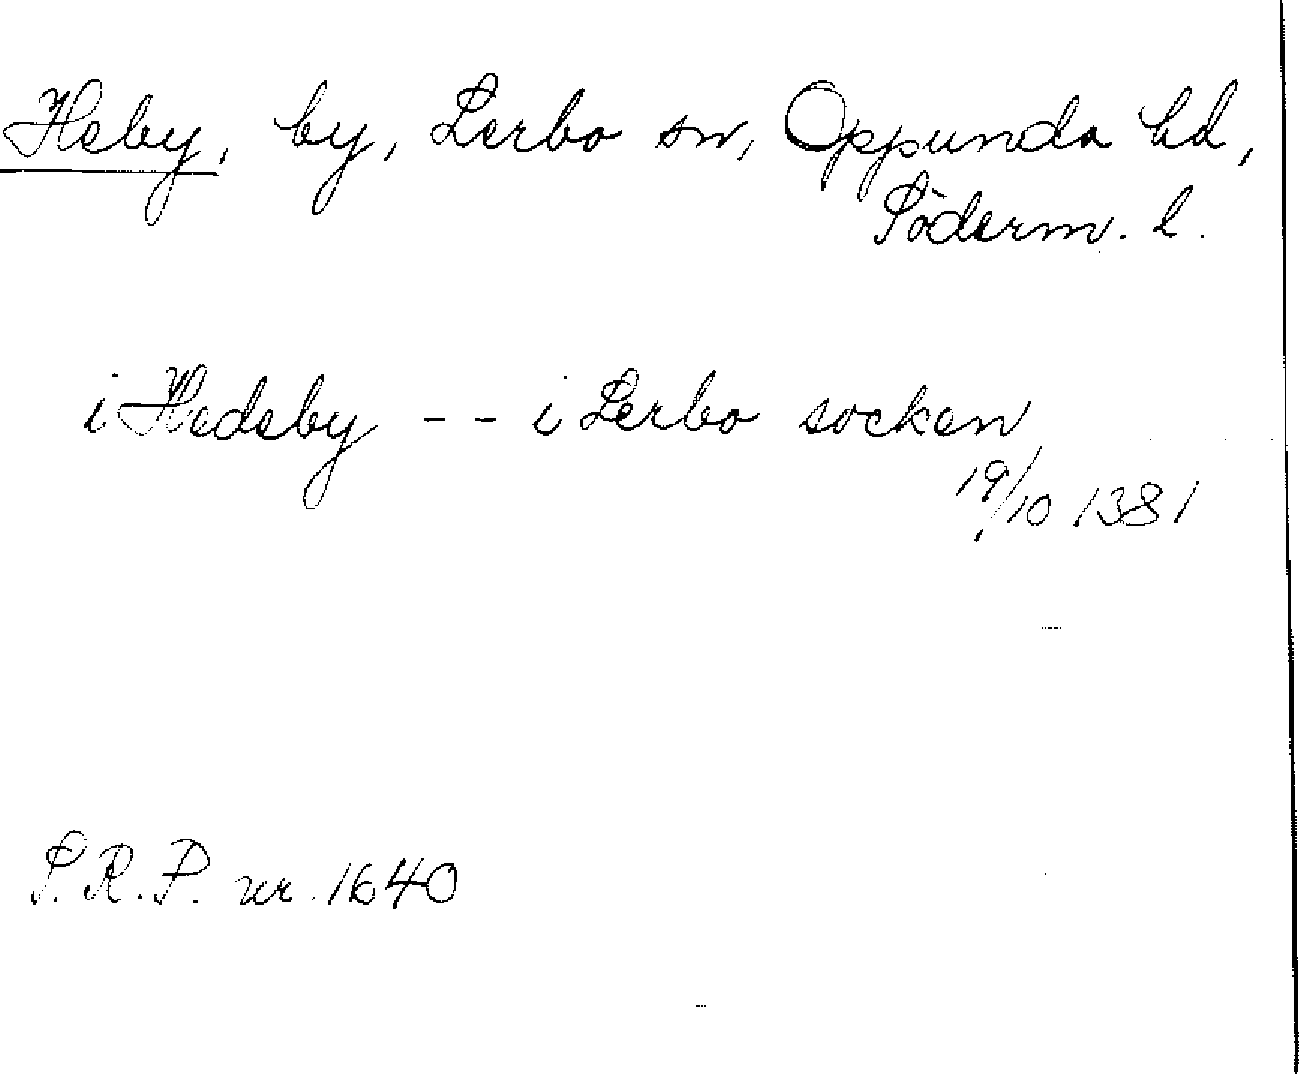 Heby, by, Lerbo sn, Oppunda hd,
Söderm. l.
i Hedeby -- i Lerbo socken
19/10 1381
S.R.P. nr. 1640